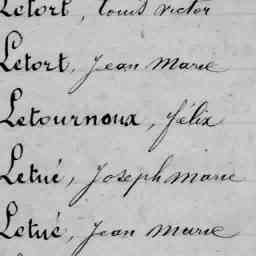 Letort, Louis Victor
Letort, Jean Marie
Letournoux, félix
Letué, Joseph marie
Letué, Jean Marie